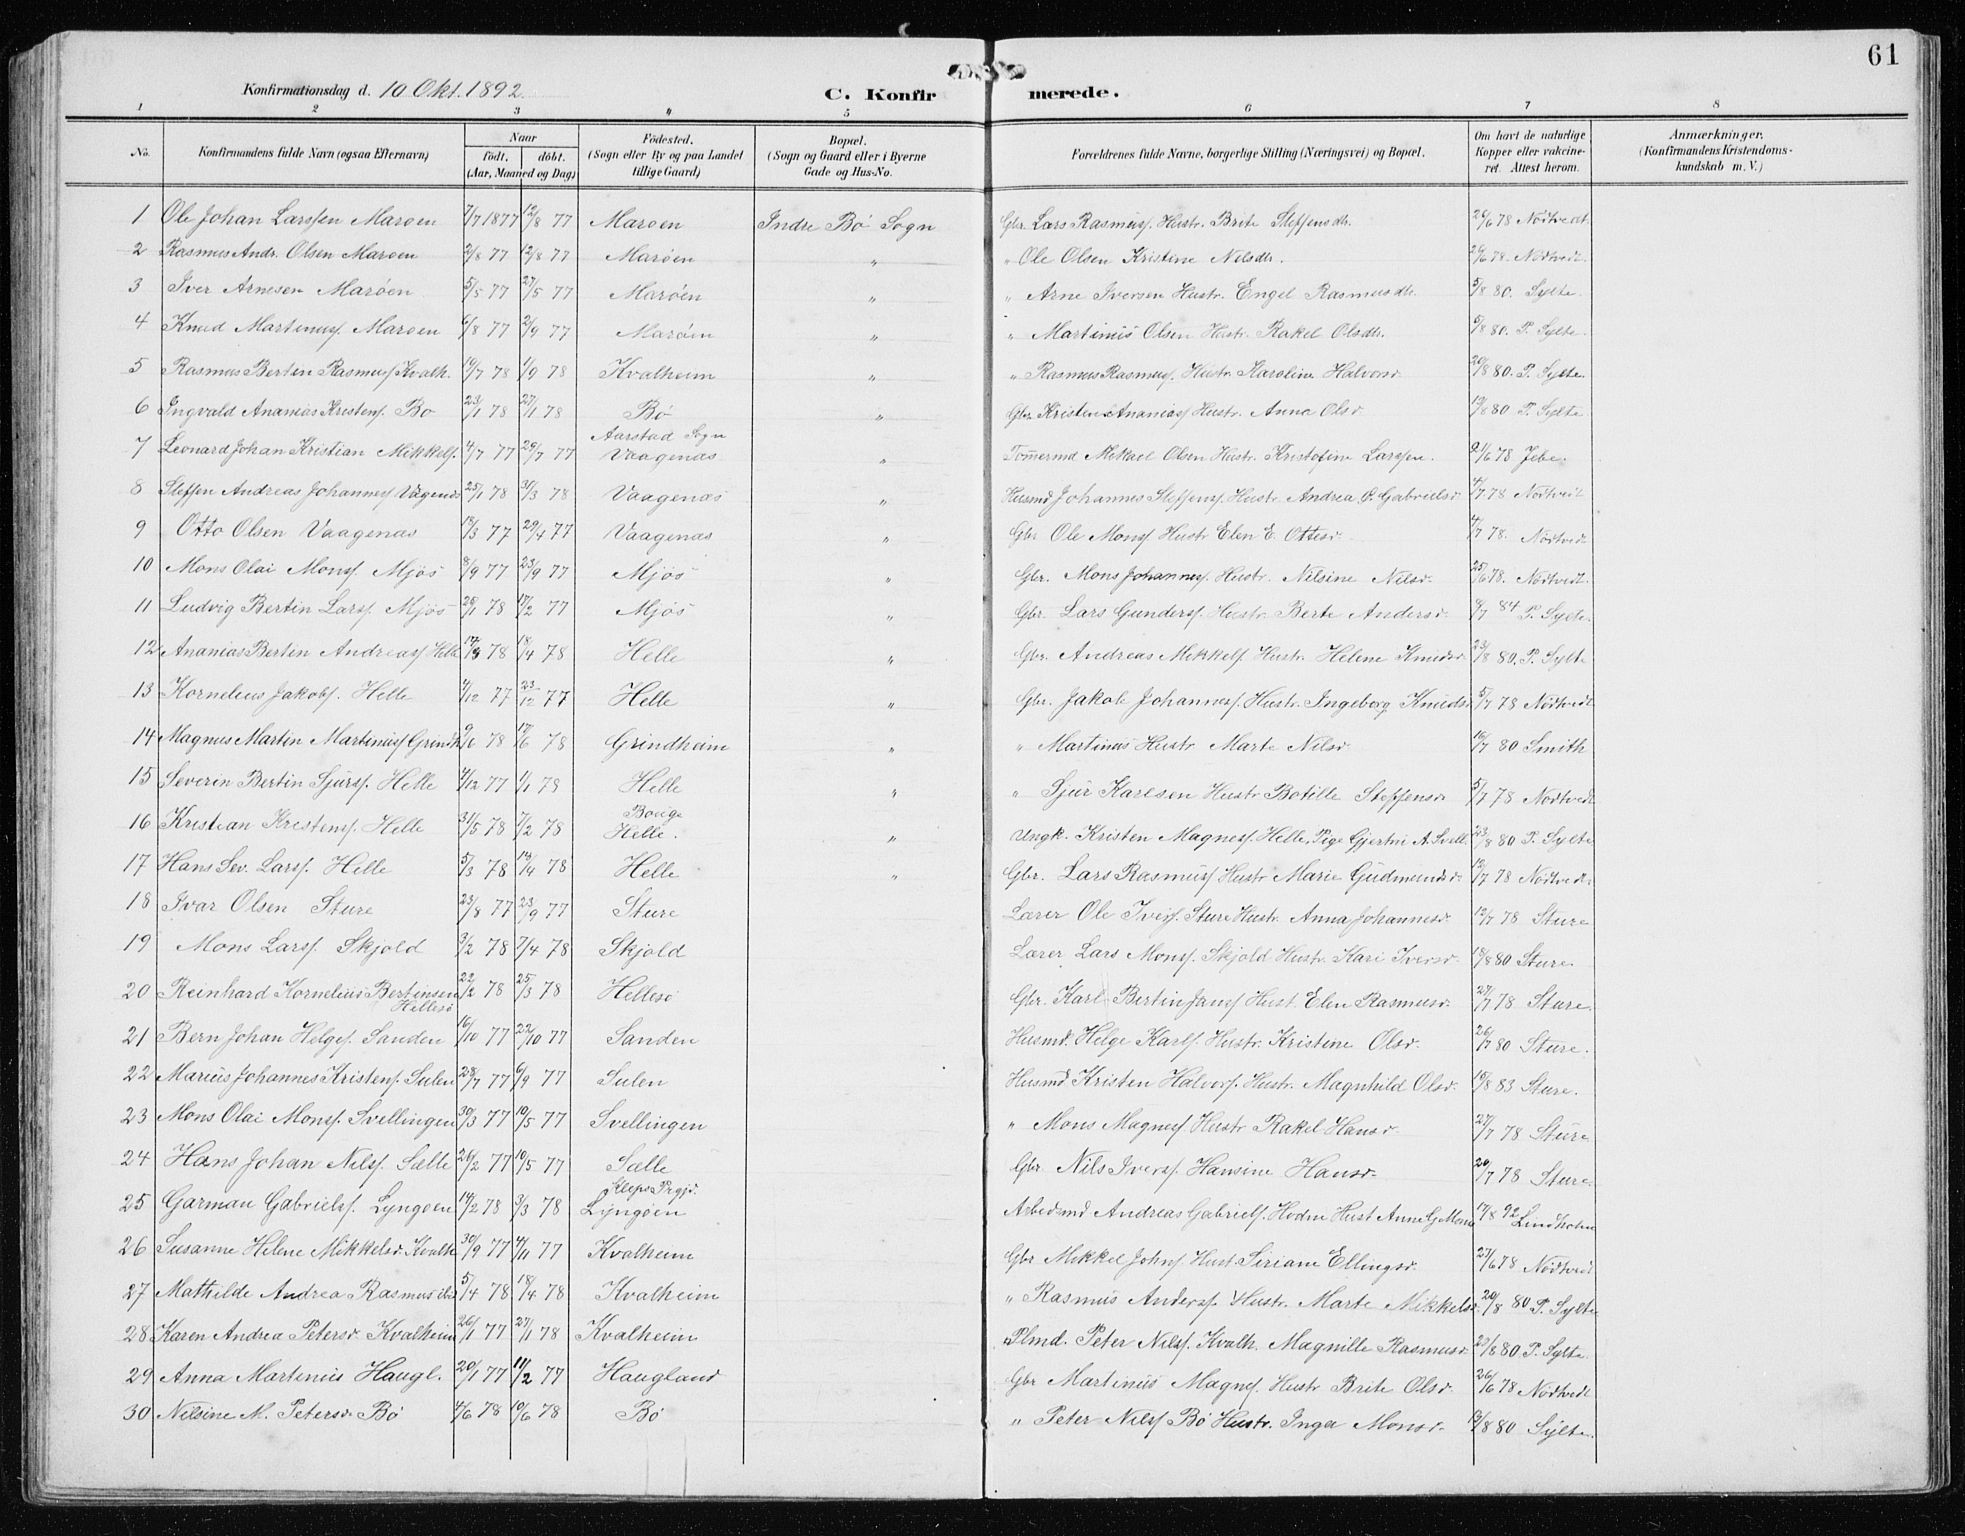 61
Konfirmationsdag d. 10 Okt. 1892
C. Konfirmerede.
1 2 3 " 5 6 7 8
No. Konfirmandens fulde Navn (ogsaa Efternavn) Naar født. døbt. (Aar, Maaned og Dag) Födested. (Sogn eller By og paa Landet tillige Gaard) Bopæl. (Sogn og Gaard eller i Byerne Gade og Hus-No. Forældrenes fulde Navne, borgerlige Stilling (Næringsvei) og Bopæl. Om havt de naturlige Kopper eller vakcineret. Attest herom. Anmærkninger. (Konfirmandens Kristendomskundskab m. V.)
1 Ole Johan Larssen Maroen 7/7 1877 12/8 77 Maroen Indre Bø Sogn Gbr. Lars Rasmuss. Hustr. Brite Steffensdtr. 26/6 78 Nödtvedt
2 Rasmus Andr. Olsen Maroen 2/8 77 12/8 77 Marøen " " Ole Olsen Kristine Nilsdtr. 26/6 78. Nödtvedt.
3 Iver Arnesen Marøen 5/5 77 27/5 77 Marøen " " Arne Iversen Hustr. Engel Rasmusdtr. 5/8 80. Sylte.
4 Knud Martinuss. Maroen 6/8 77 2/9 77 Marøen " " Martinus Olsen Hustr. Rakel Olsdtr. 5/8 80. P. Sylte
5 Rasmus Berten Rasmuss Kvalh. 19/7 78 1/9 78 Kvalheim " " Rasmus Rasmuss. Hustr. Karoline Halvorsd. 20/8 80. P. Sylte
6 Ingvald Ananias Kristens. Bø 23/1 78 27/1 78 Bø " Gbr. Kristen Ananiass Hustr. Anna Olsd. 19/8 80 P. Sylte
7 Leonard Johan Kristian Mikkels. 4/7 77 29/7 77 Aarstad Sogn Vaagenæs " Tömermd Mikael Olsen Hustr. Kristofine Larssen. 21/6 78 Jebe.
8 Steffen Andreas Johanness Vågenæs 25/1 78 31/3 78 Vaagenæs " Husmd Johannes Steffens. Hustr. Andrea P. Gabrielsd. 4/7 78 Nödtvedt
9 Otto Olsen Vaagenæs 13/3 77 29/4 77 Vaagenæs " Gbr Ole Monss Hustr Elen E. Ottesd. 4/7 78. Nödtvedt
10 Mons Olai Monss. Mjøs 8/9 77 23/9 77 Mjøs " Gbr. Mons Johanness. Hustr. Nilsine Nilsd. 25/6 78. Nödtvedt.
11 Ludvig Bertin Larss. Mjøs 25/1 78 17/2 77 Mjøs " Gbr. Lars Gunderss. Hustr Berte Andersd. 9/7 84 P. Sylte.
12 Ananias Berten Andreass Helle 14/3 78 18/4 78 Helle " Gbr. Andreas Mikkels. Hustr. Helene Knudsd. 23/8 80. P. Sylte
13 Kornelius Jakobs. Helle 4/12 77 23/12 77 Helle " Gbr. Jakob Johanness. Hustr. Ingeborg Knudsd 5/7 78 Nödtvedt
14 Magnus Martin Martinuss Grindh. 9/6 78 17/6 78 Grindheim " " Martinus Hustr Marte Nilsd. 16/7 80 Smith
15 Severin Bertin Sjurss. Helle 4/12 77 1/1 78 Helle " " Sjur Karlsen Hustr Botille Steffensd 5/7 78 Nödtvedt
16 Kristian Kristens. Helle 31/5 78 7/2 78 Helle. " Ungk. Kristen Magness. Helle, Pige Gjertni A. Svell. 23/8 80 P. Sylte
17 Hans Sev. Larss. Helle 5/3 78 14/4 78 Helle " Gbr. Lars Rasmuss Hustr Marie Gudmundsd. 12/7 78 Nödtvedt
18 Ivar Olsen Sture 23/8 77 23/9 77 Sture Lærer Ole Ivers. Sture Hustr. Anna Johannesd. 12/7 78 Sture
19 Mons Larss. Skjold 3/2 78 7/4 78 Skjold Lærer Lars Monss. Skjold Hustr. Kari Iversd. 18/8 80 Sture
20 Reinhard Kornelius Bertinsen Hellesø 22/2 78 25/3 78 Hellesø Gbr. Karl Bertin Janss Hust. Elen Rasmusd. 27/7 78 Sture.
21 Bern Johan Helges. Sanden 16/10 77 22/10 77 Sanden Husmd. Helge Karls. Hustr. Kristine Olsd. 26/7 80 Sture.
22 Marius Johannes Kristens. Sulen 28/7 77 6/9 77 Sulen Husmd Kristen Halvors. Hustr. Magnhild Olsd. 19/8 83 Sture.
23 Mons Olai Monss. Svellingen 30/3 77 10/5 77 Svellingen " Mons Magness Hustr Rakel Hansd. 27/7 78 Sture
24 Hans Johan Nilss. Sælle 26/2 77 10/5 77 Sælle Gbr Nils Ivers. Hansine Hansd. 20/7 78 Sture
25 Garman Gabrielss. Lyngøen 14/2 78 3/3 78 Kleps Prgjd. Lyngøen Arbedsmd Andreas Gabriels. Hust Anne G. 17/8 92 Lindholm
26 Susanne Helene Mikkelsd. Kvalhe 30/9 77 4/11 77 Kvalheim Gbr Mikkel Johns Hust. Siriane Ellingsd. 27/6 78 Nödtvedt
27 Mathilde Andrea Rasmusd. 5/4 78 18/4 78 Kvalheim " Rasmus Anderss. Hustr. Marte Mikkelsd. 20/8 80 P. Sylte
28 Karen Andrea Petersd. Kvalheim 26/1 77 27/1 78 Kvalheim Plmd. Peter Nilss. Kvalh. Magnille Rasmusd. 23/8 80 P. Sylte.
29 Anna Martinus Haugl. 20/1 77 11/2 77 Haugland Gbr Martinus Magness. Hustr Brite Olsd. 26/6 78 Nödtvedt
30 Nilsine M. Petersd. Bø 4/6 78 10/6 78 Bø " Peter Nilss Bø Hustr. Inga Monsd. 13/8 80 Sylte.